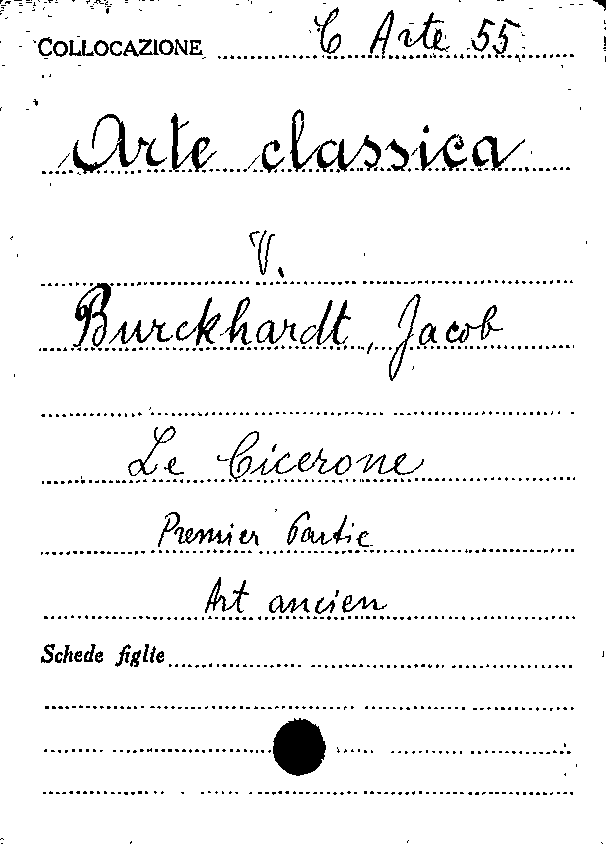 COLLOCAZIONE C Arte 55
Arte classica
V.
Burckhardt, Jacob
Le Cicerone
Premier Partie
Art ancien
Schede figlie